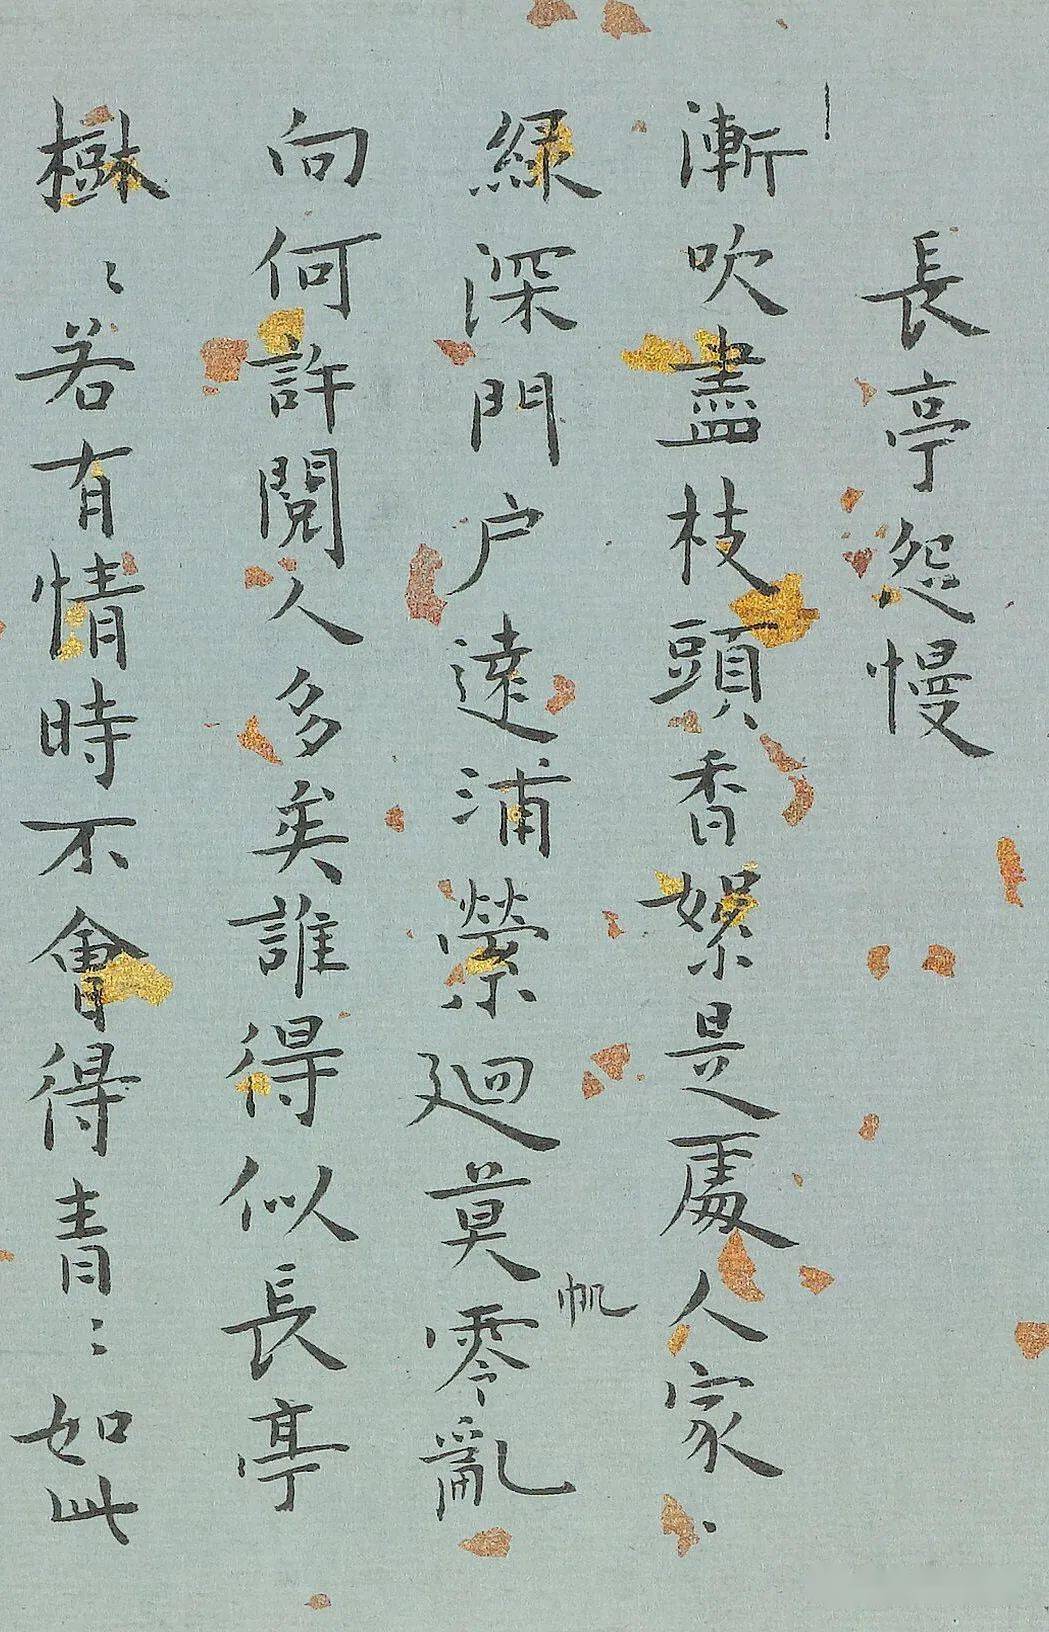 長亭怨慢
漸吹盡枝頭香絮是處人家、
綠深門户遠浦縈迴莫零亂
帆
向何許閱人多矣誰得似長亭
樹〻若有情時不會得青〻如此